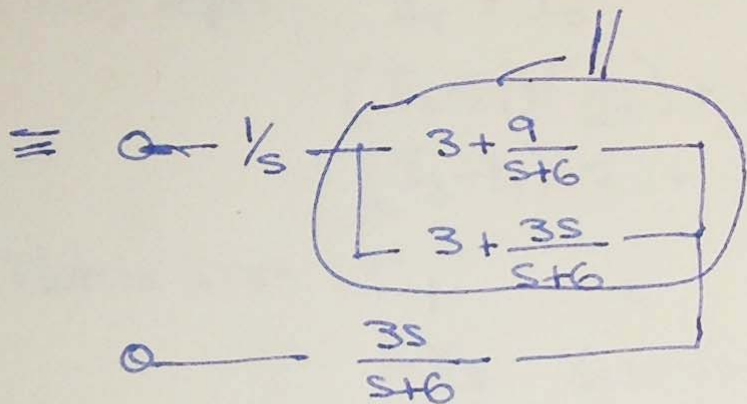 ||
≡ 1/s 3 + 9/(s+6)
3 + 3s/(s+6)
3s/(s+6)